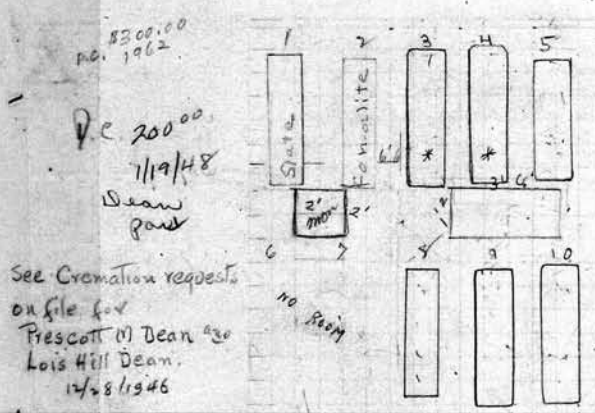 $300.00
P.C. 1962
P.C. 200.00
1/19/48
Dean
paid
See Cremation requests
on file for
Prescott M Dean
Lois Hill Dean.
12/28/1946
1 2 3 4 5
Slate
*
*
2'
mon
2'
6 7 8 9 10
NO ROOM